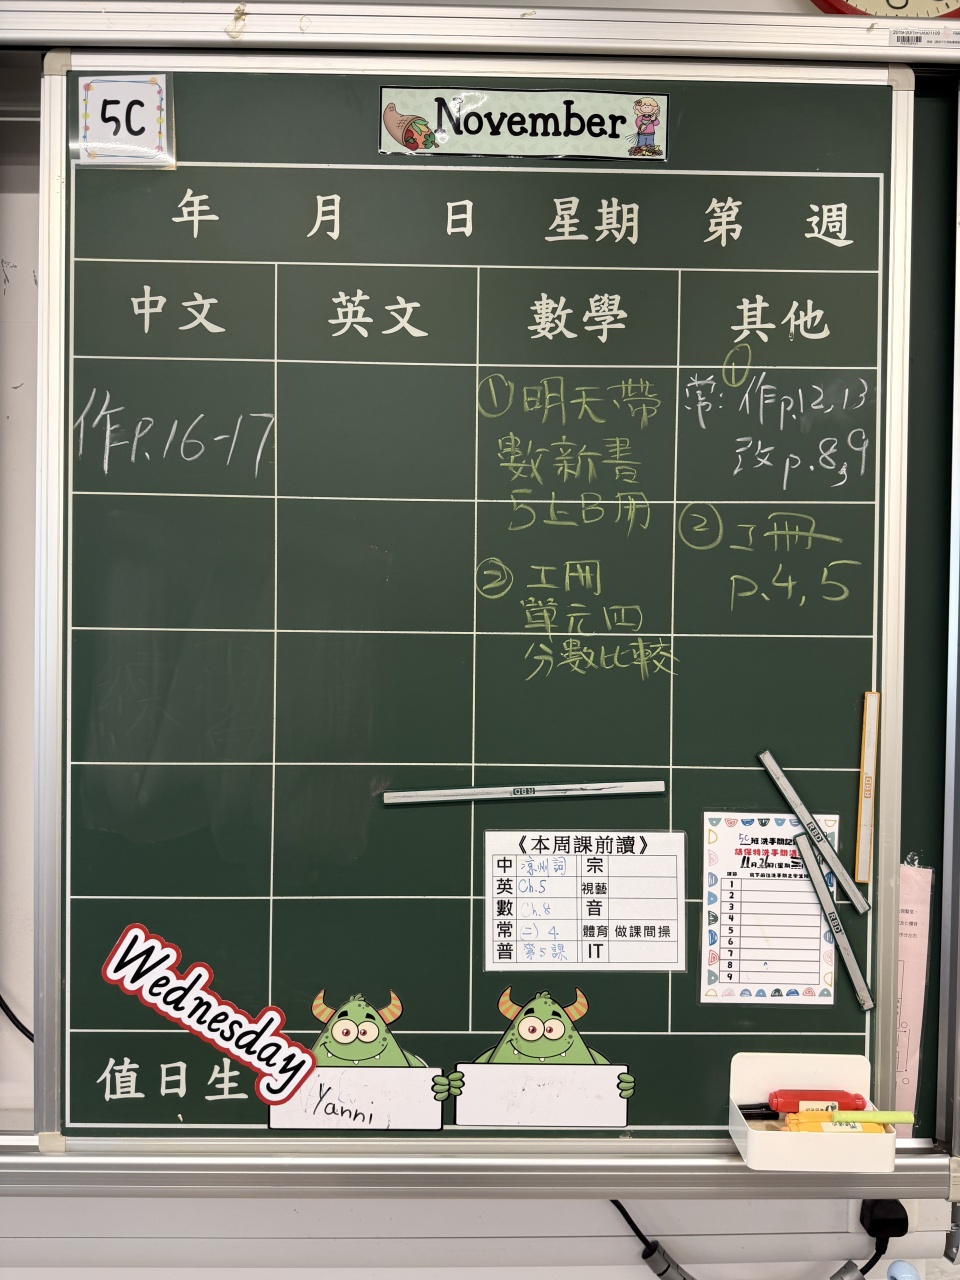 5C
November
年 月 日 星期 第 週
中文 英文 數學 其他
作P.16-17
① 明天帶
數新書
5上B冊
② 工冊
單元四
分數比較
①
常: 作p.12,13
改p.8,9
② 工冊
p.4,5
RBD
RBD
RBD
RBD
《本周課前讀》
中 涼州詞 宗
英 Ch.5 視藝
數 Ch.8 音
常 (二) 4 體育 做課間操
普 第5課 IT
5C班洗手間記
請保持洗手間清
11月26日(星期三)
1
2
3
4
5
6
7
8
9
Wednesday
值日生
Yanni